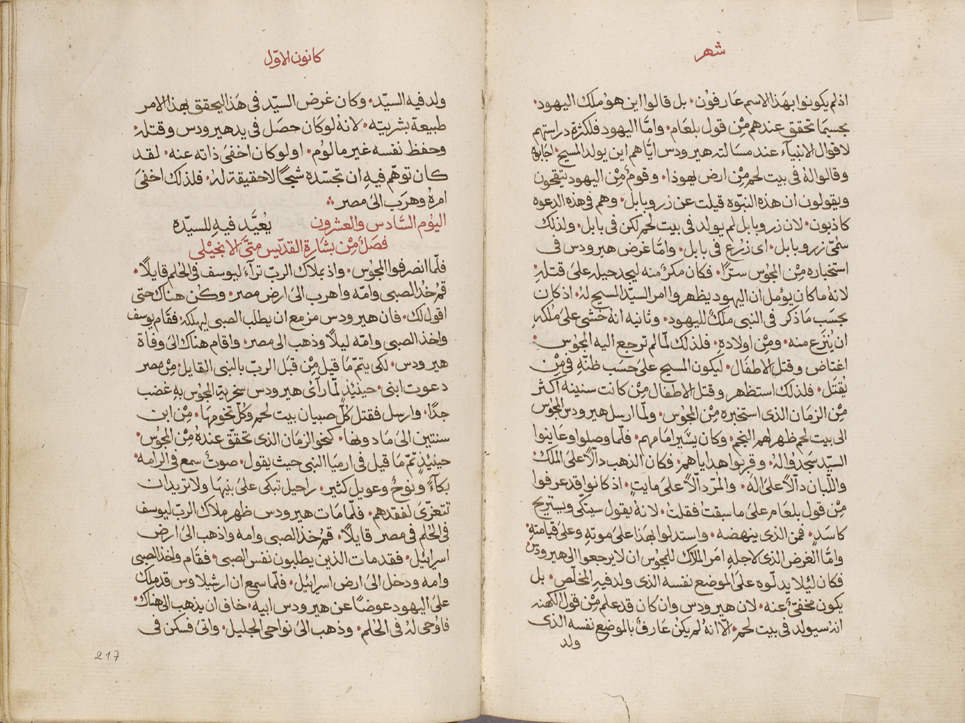 شهر
اذ لم يكونوا بهذا الاسم عارفون٠ بل قالوا اين هو ملك اليهود٠
بحسبما تحقق عندهم من قول بلعام٠ وامّا اليهود فلكثرة دراستهم
لاقوال الانبياء عند مسالة هيرودس ايّاهم اين يولد المسيح٠ اجابوه
وقالوا له في بيت لحم من ارض يهوذا٠ وقوم من اليهود يتقحون
ويقولون ان هذه النبوّه قيلت عن زروبابل٠ وهم في هذه الدعوه
كاذبون٠ لان زروبابل لم يولد في بيت لحم لكن في بابل٠ ولذلك
سمّي زروبابل٠ اي زرع في بابل٠ وامّا غرض هيرودس في
استخباره من المجوس سرّاً٠ فكان مكرٌ منه ليجد حيله على قتله٠
لانه ما كان يومل ان اليهود يظهروا امر السيّد المسيح له٠ اذ كان
بحسب ما ذكر في النبي ملكٌ لليهود٠ وثانيه انه خشي على ملكه
ان يُنتزع منه٠ ومن اولاده٠ فلذلك لما لم ترجع اليه المجوس٠
اغتاض وقتل الاطفال٠ ليكون المسيح على حسب ظنّه في من
يُقتل٠ فلذلك استظهر وقتل الاطفال من كانت سنينه أكثر
من الزمان الذي استخبره من المجوس٠ ولمّا ارسل هيرودس المجوس
الى بيت لحم ظهر لهم النجم٠ وكان يسير امامهم٠ فلمّا وصلوا وعاينوا
السيّد سجدوا له٠ وقربوا هداياهم٠ فكان الذهب دالاً على الملك٠
واللّبان دالاً على اله٠ والمرّ دالاً على مايت٠ اذ كانوا قد عرفوا
من قول بلعام على ما سبقت فقلت٠ لانه يقول سيتكي ويستريح
كاسدٍ٠ فمن الذي ينهضه٠ واستدلوا بهذا على موته وعلى قيامته٠
وامّا الغرض الذي لاجله امر الملاك للمجوس ان لا يرجعوا الى هيرودس
فكان ليلا يدلّوه على الموضع نفسه الذي ولد فيه المخلّص٠ بل
يكون مخفيّ عنه٠ لان هيرودس وان كان قد علم من قول الكهنه
انه سيولد في بيت لحم٠ الا انه لم يكن عارفٌ بالموضع نفسه الذي
ولد
كانون الاوّل
ولد فيه السيّد٠ وكان غرض السيّد في هذا ليحقق بهذا الامر
طبيعة بشريته٠ لانه لو كان حصل في يد هيرودس وقتله٠
وحفظ نفسه غير مالوم٠ او لو كان اخفى ذاته عنه٠ لقد
كان توهّم فيه ان تجسّده شبحًا لا حقيقة له٠ فلذلك اخفى
امره وهرب الى مصر
اليوم السّادس والعشرون يُعيَّد فيه للسيّده
فصلٌ من بشارة القدّيس متّى الانجيلي
فلمّا انصرفوا المجوس٠ واذ بملاك الربّ تراءَ ليوسف في الحلم قايلاً٠
قم خذ الصبي وامّه واهرب الى ارض مصر٠ وكن هناك حتى
اقول لك٠ فان هيرودس مزمع ان يطلب الصبي ليهلكه٠ فقام يوسف
واخذ الصبي وامّه ليلاً وذهب الى مصر٠ واقام هناك الى وفاة
هيرودس٠ لكي يتمّ ما قيل من قبل الربّ بالنبي القايل٠ من مصر
دعوت ابني٠ حينيذٍ لمّا رأى هيرودس سخرية المجوس به غضب
جدًا٠ وارسل فقتل كلّ صبيان بيت لحم وكلّ تخومها٠ من ابن
سنتين الى ما دونها٠ كنحو الزمان الذي تحقق عنده من المجوس٠
حينيذٍ تمّ ما قيل في ارميا النبي حيث يقول٠ صوتٌ سمع في الرامه٠
بكاءٌ ونوحٌ وعويل كثير٠ راحيل تبكي على بنيها ولا تريد ان
تتعزّى لفقدهم٠ فلمّا مات هيرودس ظهر ملاك الربّ ليوسف
في الحلم في مصر قايلاً٠ قم خذ الصبي وامه واذهب الى ارض
اسرائيل٠ فقد مات الذين يطلبون نفس الصبي٠ فقام واخذ الصبي
وامه ودخل الى ارض اسرائيل٠ فلمّا سمع ان ارشيلاوس قد ملك
على اليهود عوضًا عن هيرودس ابيه٠ خاف ان يذهب الى هناك٠
فاوحي له في الحلم٠ وذهب الى نواحي الجليل٠ واتى فسكن في
217